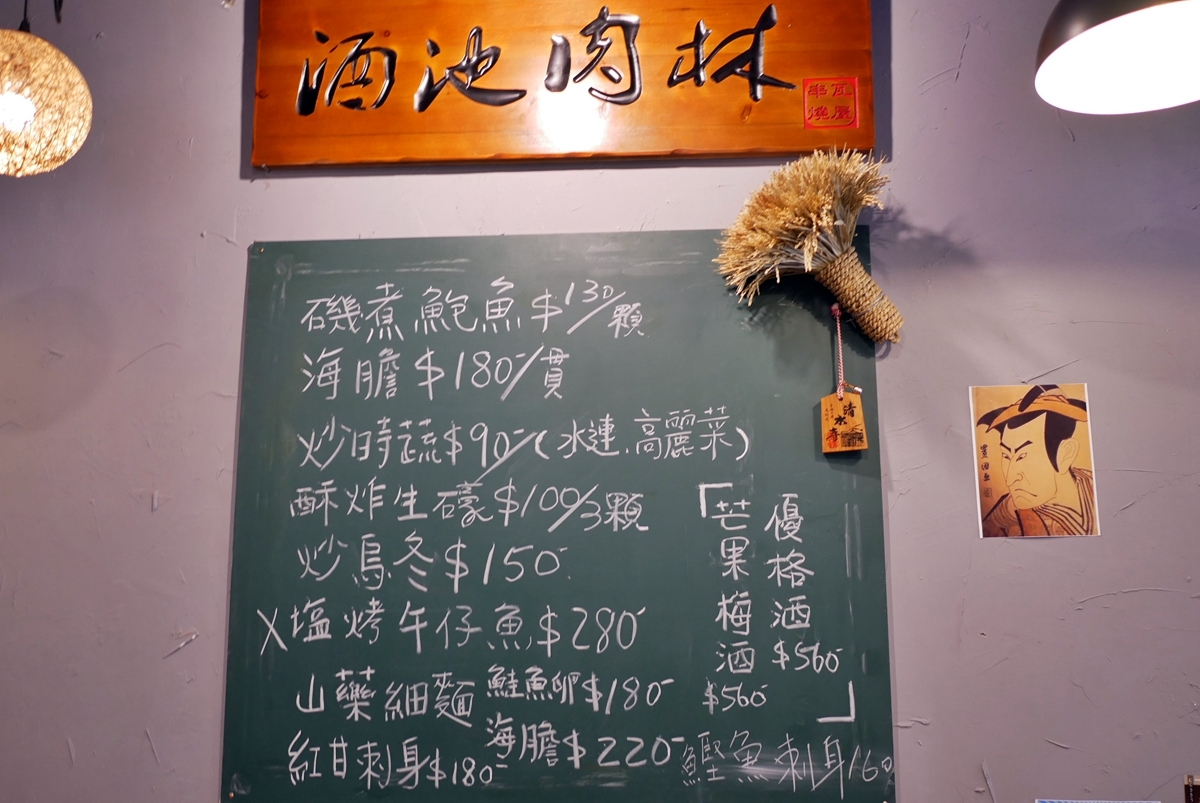 酒池肉林
瓦屋
串燒
磯煮鮑魚$130/顆
海膽$180-/貫
炒時蔬$90-/(水蓮.高麗菜)
酥炸生礒$100/3顆
炒烏冬$150-
X塩烤午仔魚$280-
山藥細麵 鮭魚卵$180-
海膽$220-
紅甘刺身$180-
鰹魚刺身160
「優格酒$560-
芒果梅酒$560-」
清水寺
豊国画